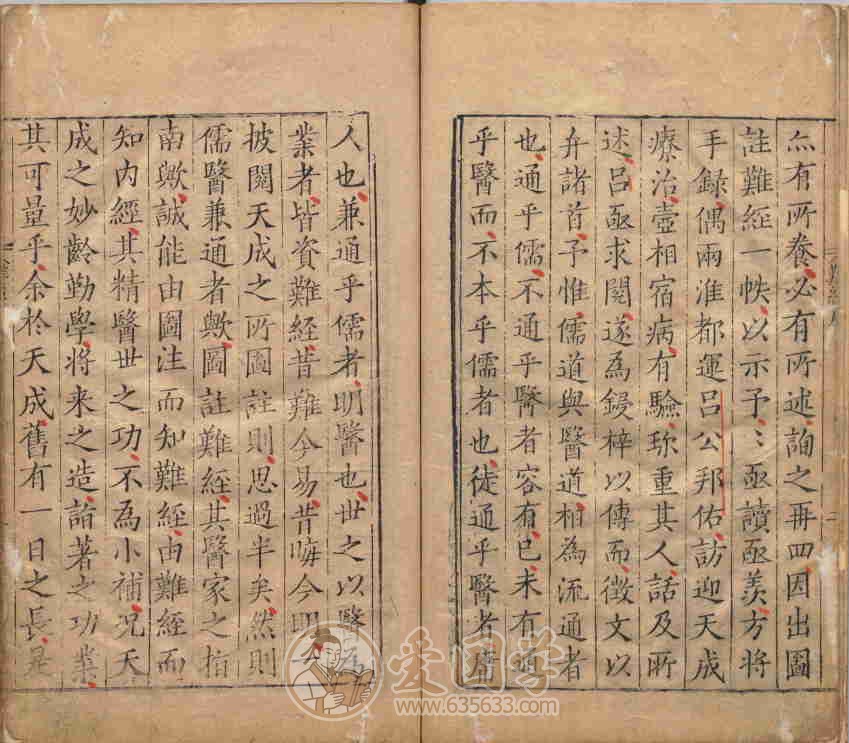 亦有所養必有所述詢之再四因出圖
註難經一帙以示予〻亟讀亟羨方將
手錄偶兩淮都運吕公邦佑訪迎天成
療治壼相宿病有驗珎重其人話及所
述吕亟求閱遂為鋟梓以傳而徵文以
弁諸首予惟儒道與醫道相為流通者
也通乎儒不通乎醫者容有已未有通
乎醫而不本乎儒者也徒通乎醫者庸
人也兼通乎儒者明醫也世之以醫為
業者皆資難經昔難今易昔晦今明
披閱天成之所圖註則思過半矣然則
儒醫兼通者歟圖註難經其醫家之指
南歟誠能由圖注而知難經由難經而
知內經其精醫世之功不為小補况天
成之妙齡勤學將来之造詣著之功業
其可量乎余於天成舊有一日之長是
爱国学
www.635633.com